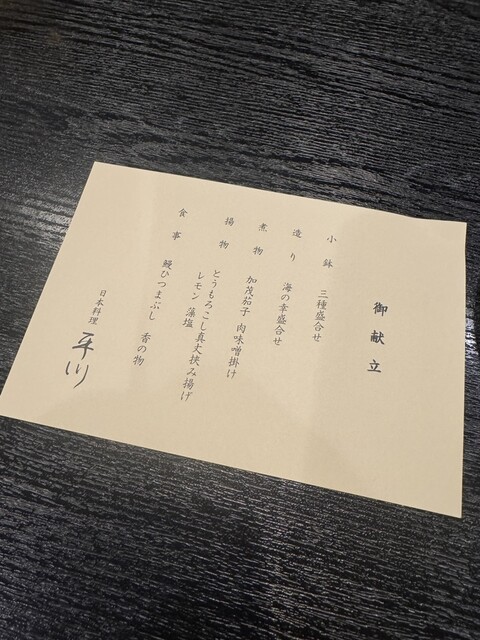 御献立
小鉢 三種盛合せ
造り 海の幸盛合せ
煮物 加茂茄子 肉味噌掛け
揚物 とうもろこし真丈挟み揚げ
レモン 藻塩
食事 鰻ひつまぶし 香の物
日本料理 平川